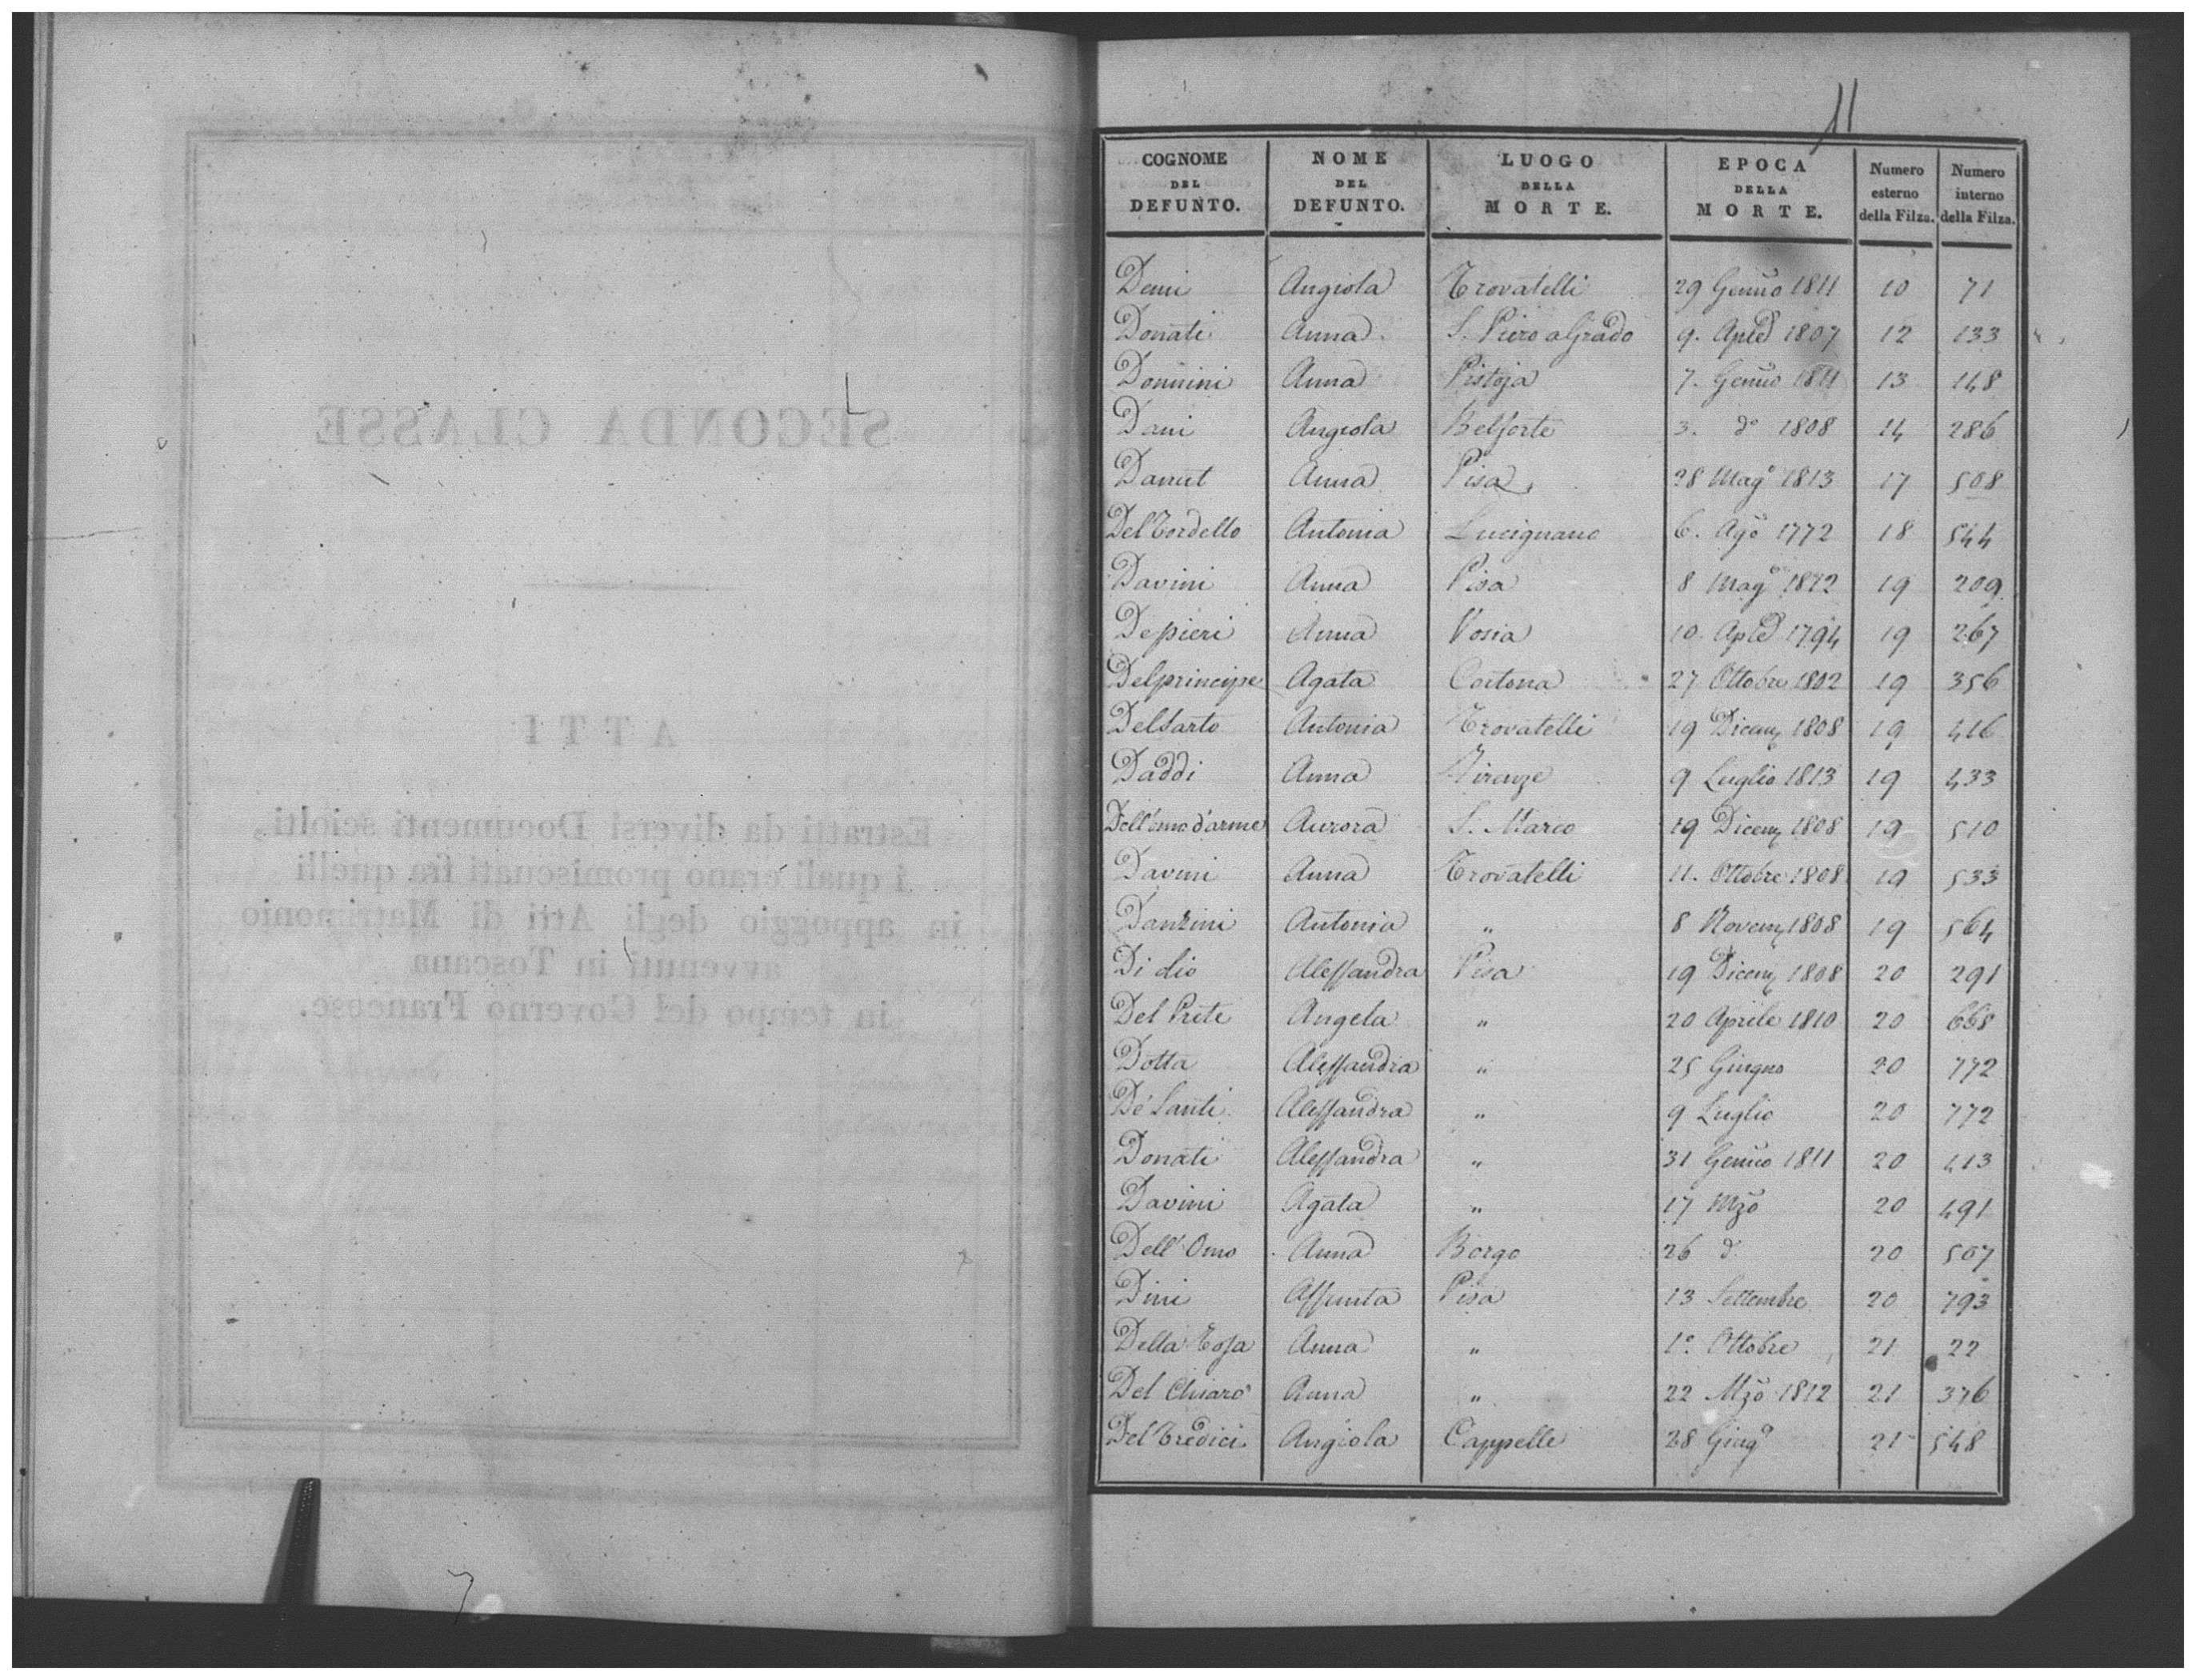 SECONDA CLASSE
ATTI
Estratti da diversi Documenti sciolti,
i quali erano promiscuati fra quelli
in appoggio degli Atti di Matrimonio
avvenuti in Toscana
in tempo del Governo Francese.
COGNOME DEL DEFUNTO. NOME DEL DEFUNTO. LUOGO DELLA MORTE. EPOCA DELLA MORTE. Numero esterno della Filza. Numero interno della Filza.
Demi Angiola Trovatelli 29 Genno 1811 10 71
Donati Anna S. Piero a Grado 9. Aple 1807 12 133
Donnini Anna Pistoja 7. Genno 1811 13 148
Dani Angiola Belforte 3. do 1808 14 286
Anna Pisa 28 Mago 1813 17 508
Del Tordello Antonia Lucignano 6. Ago 1772 18 544
Davini Anna Pisa 8 Mago 1812 19 209
Depieri Anna Vosia 10. Aple 1794 19 267
Delprincipe Agata Cortona 27 Ottobre 1802 19 356
Delsarto Antonia Trovatelli 19 Dicem 1808 19 416
Daddi Anna Firenze 9 Luglio 1813 19 433
Dell'omo d'arme Aurora S. Marco 19 Dicem 1808 19 510
Davini Anna Trovatelli 11. Ottobre 1808 19 533
Danzini Antonia " 8 Novem 1808 19 564
Di dio Alessandra Pisa 19 Dicem 1808 20 291
Del Prete Angela " 20 Aprile 1810 20 668
Dotta Alessandra " 25 Giugno 20 772
De' Santi Alessandra " 9 Luglio 20 772
Donati Alessandra " 31 Genno 1811 20 413
Davini Agata " 17 Mzo 20 491
Dell' Omo Anna Borgo 26 d 20 507
Dini Assunta Pisa 13 Settembre 20 793
Della Tosa Anna " 1o. Ottobre 21 22
Del Chiaro Anna " 22 Mzo 1812 21 376
Del Tredici Angiola Cappelle 28 Giugo 21 548